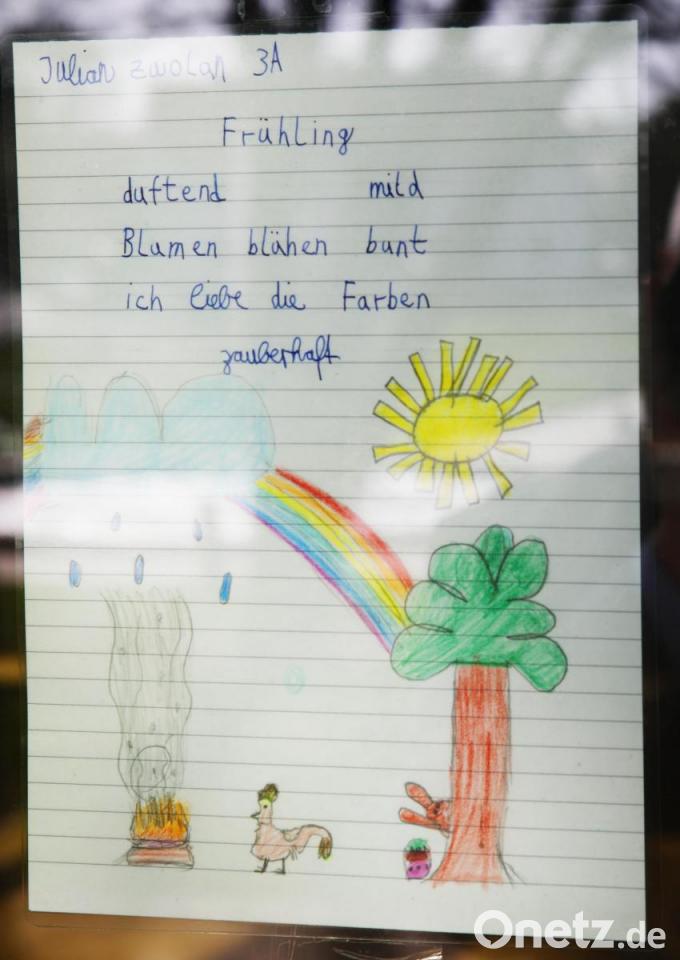 Julian Zwolan 3A
Frühling
duftend mild
Blumen blühen bunt
ich liebe die Farben
zauberhaft
Onetz.de